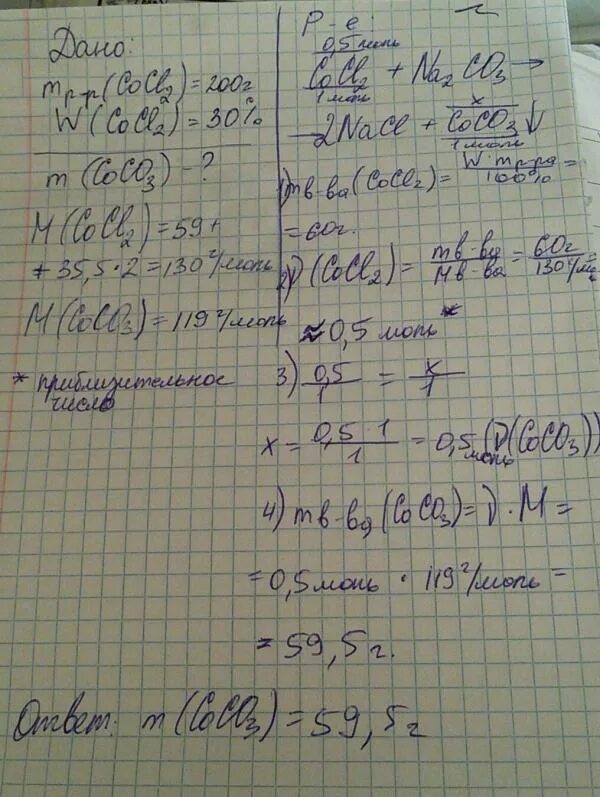 Дано:
m р-ра (CoCl₂) = 200г
W (CoCl₂) = 30%
m (CoCO₃) - ?
M (CoCl₂) = 59 +
+ 35,5 · 2 = 130 г/моль
M (CoCO₃) = 119 г/моль
* приблизительное
число
Р-е:
0,5 моль
CoCl₂ + Na₂CO₃ →
1 моль
x
→ 2NaCl + CoCO₃ ↓
1 моль
1) m в-ва (CoCl₂) = W · m р-ра / 100% =
= 60г.
2) ν (CoCl₂) = m в-ва / M в-ва = 60г / 130 г/моль =
≈ 0,5 моль *
3) 0,5 / 1 = x / 1
x = 0,5 · 1 / 1 = 0,5 моль (ν (CoCO₃))
4) m в-ва (CoCO₃) = ν · M =
= 0,5 моль · 119 г/моль =
= 59,5 г.
Ответ: m (CoCO₃) = 59,5 г